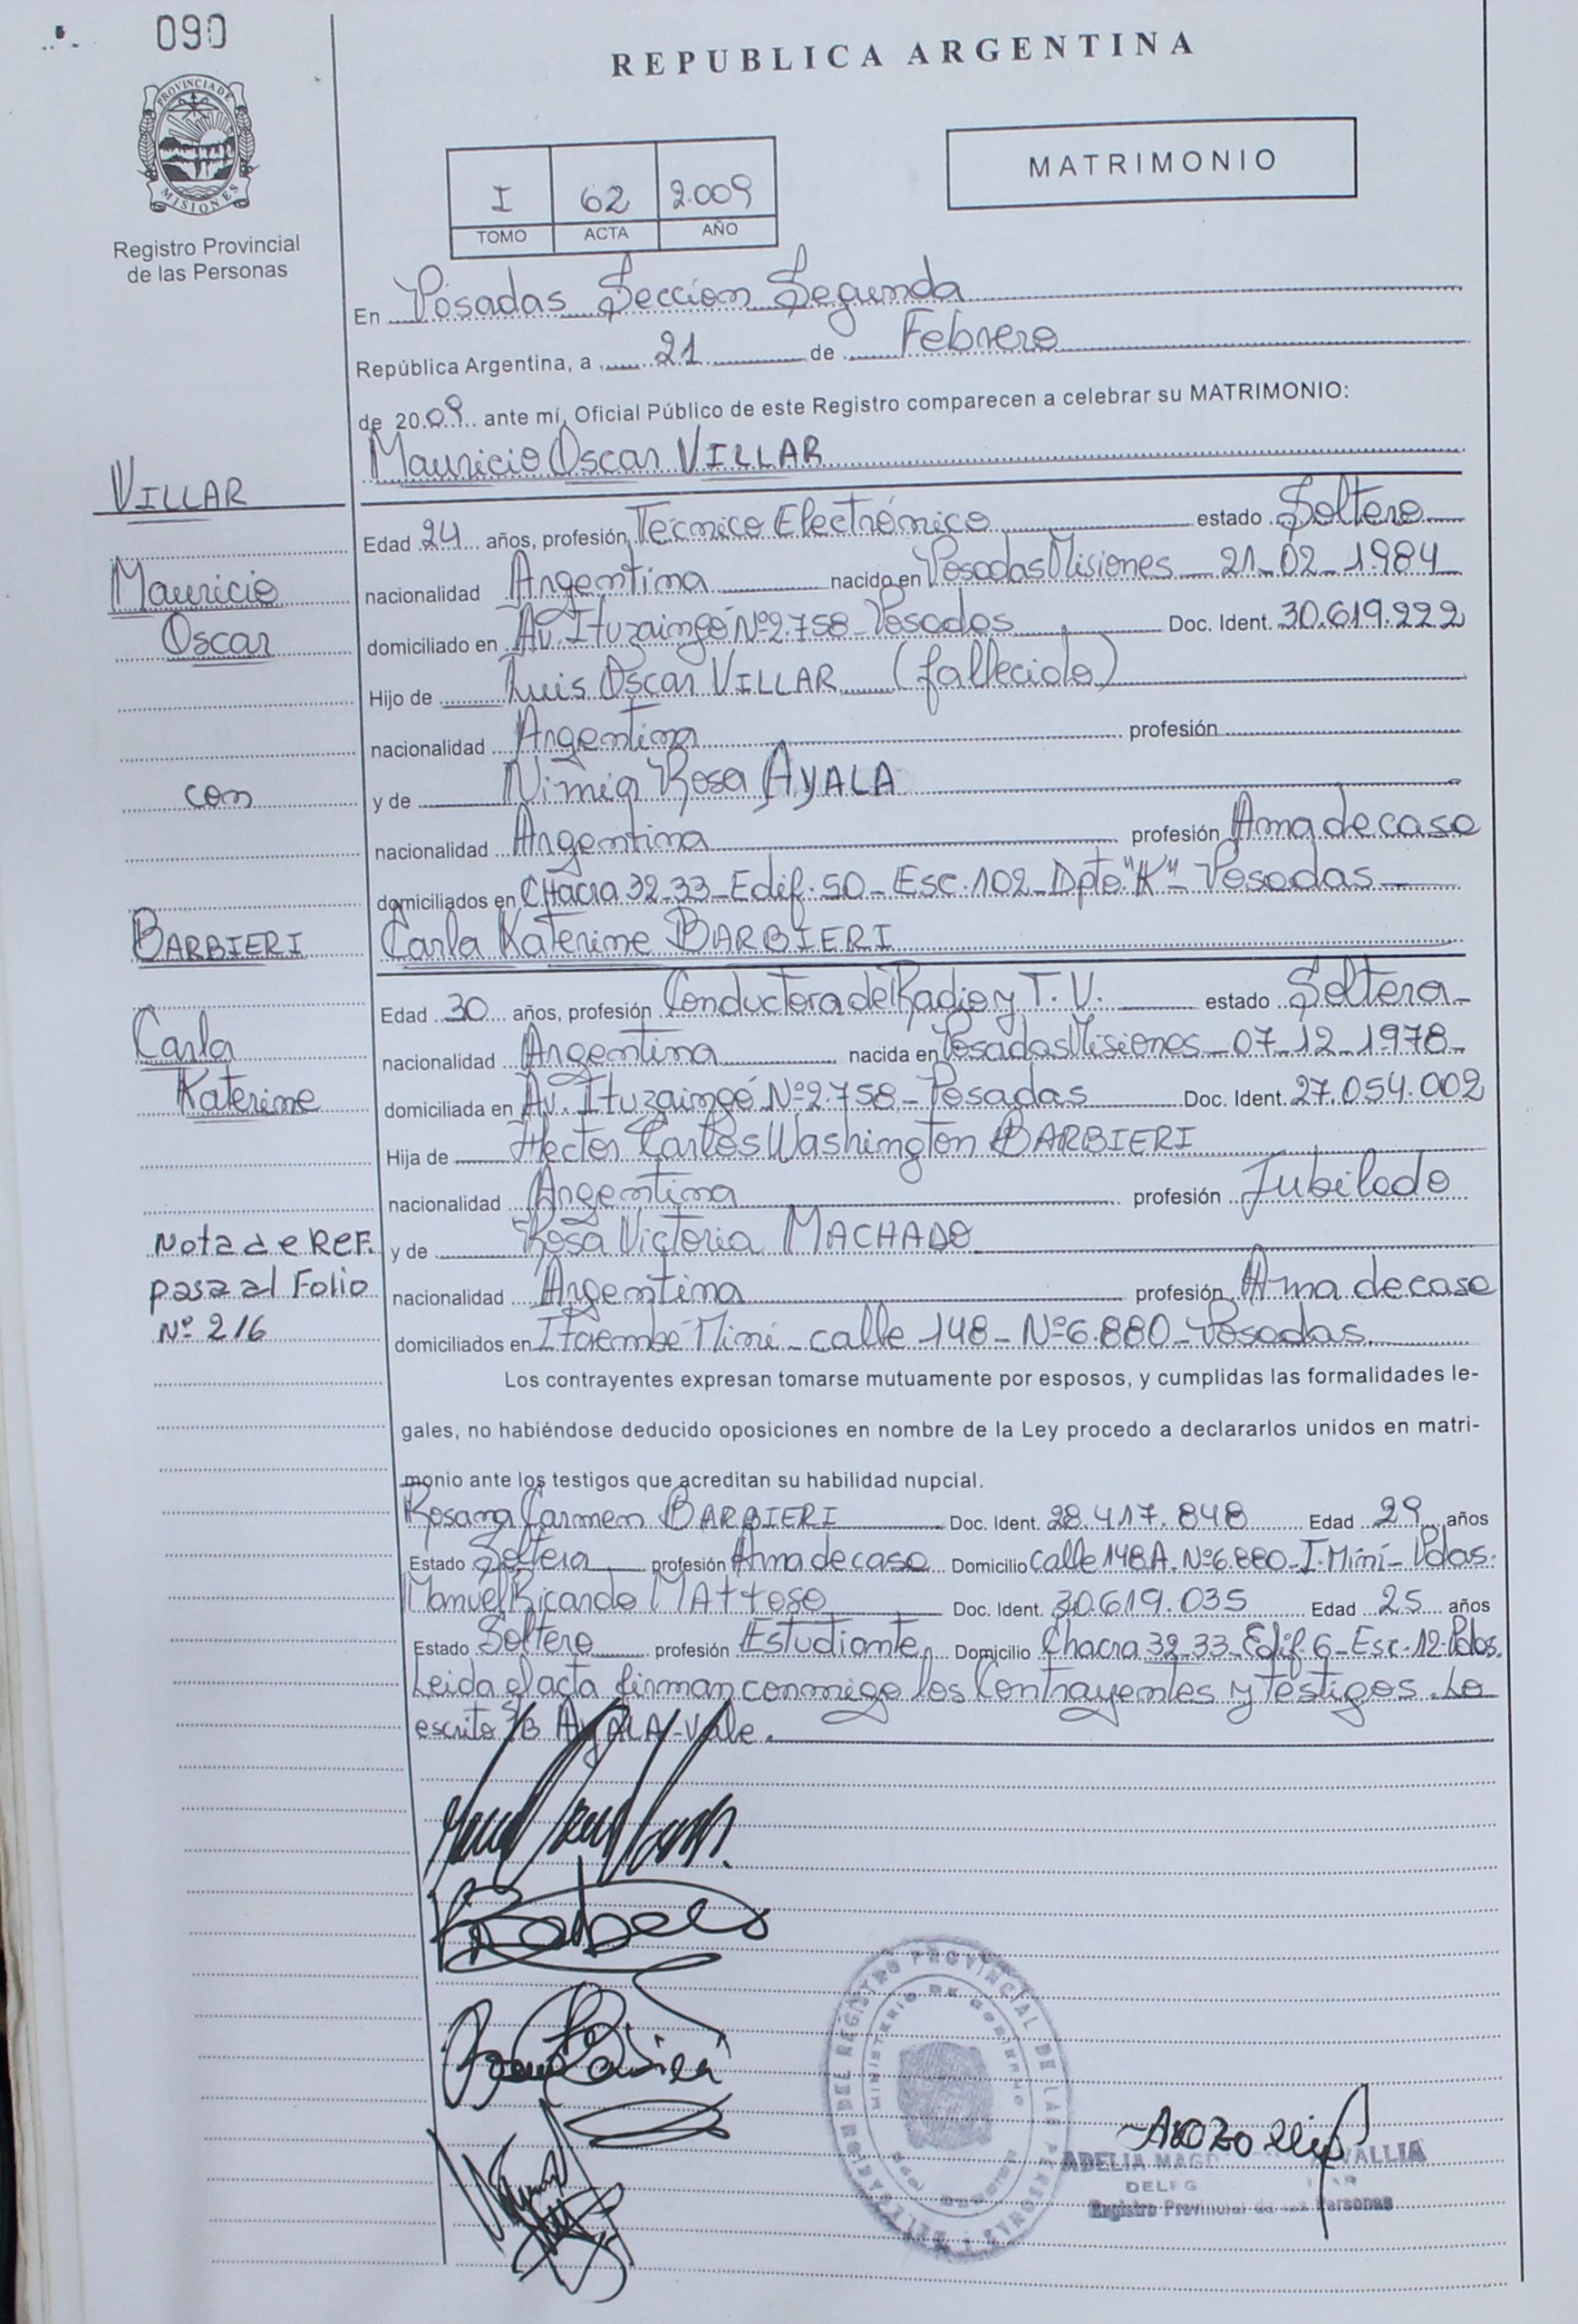 090
REPUBLICA ARGENTINA
PROVINCIA DE
MISIONES
Registro Provincial
de las Personas
I 62 2.009
TOMO ACTA AÑO
MATRIMONIO
En Posadas Sección Segunda
República Argentina, a 21 de Febrero
de 2009 ante mí, Oficial Público de este Registro comparecen a celebrar su MATRIMONIO:
Mauricio Oscar VILLAR
VILLAR
Edad 24 años, profesión Técnico Electrónico estado Soltero
Mauricio
nacionalidad Argentina nacido en Posadas Misiones _ 21_02_1.984
Oscar
domiciliado en Av. Ituzaingó Nº2.758_Posadas Doc. Ident. 30.619.222
Hijo de Luis Oscar VILLAR (fallecido)
nacionalidad Argentina profesión
con
y de Nimia Rosa AYALA
nacionalidad Argentina profesión Ama de casa
domiciliados en CHacra 32_33_Edif.50_Esc.102_Dpto."K"_Posadas
BARBIERI
Carla Katerine BARBIERI
Edad 30 años, profesión Conductora de Radio y T.V. estado Soltera
Carla
nacionalidad Argentina nacida en Posadas Misiones_07_12_1.978
Katerine
domiciliada en Av. Ituzaingó Nº2.758_Posadas Doc. Ident. 27.054.002
Hija de Hector Carlos Washington BARBIERI
nacionalidad Argentina profesión Jubilado
Nota de REF.
y de Rosa Victoria MACHADO
pasa al Folio
nacionalidad Argentina profesión Ama de casa
Nº 216
domiciliados en Itaembé Miní_calle 148_Nº6.880_Posadas
Los contrayentes expresan tomarse mutuamente por esposos, y cumplidas las formalidades le-
gales, no habiéndose deducido oposiciones en nombre de la Ley procedo a declararlos unidos en matri-
monio ante los testigos que acreditan su habilidad nupcial.
Rosana Carmen BARBIERI Doc. Ident. 28.417.848 Edad 29 años
Estado Soltera profesión Ama de casa Domicilio calle 148A.Nº6.880_I.Miní_Pdas.
Manuel Ricardo MAttoso Doc. Ident. 30.619.035 Edad 25 años
Estado Soltero profesión Estudiante Domicilio Chacra 32_33_Edif.6_Esc.12.Pdas.
Leida el acta firman conmigo los Contrayentes y testigos. Lo
escrito S/B AyALA-Vale.
DELEGACION DEL REGISTRO PROVINCIAL DE LAS PERSONAS
MINISTERIO DE GOBIERNO
ADELIA MAGD VALLIA
Registro Provincial de las Personas